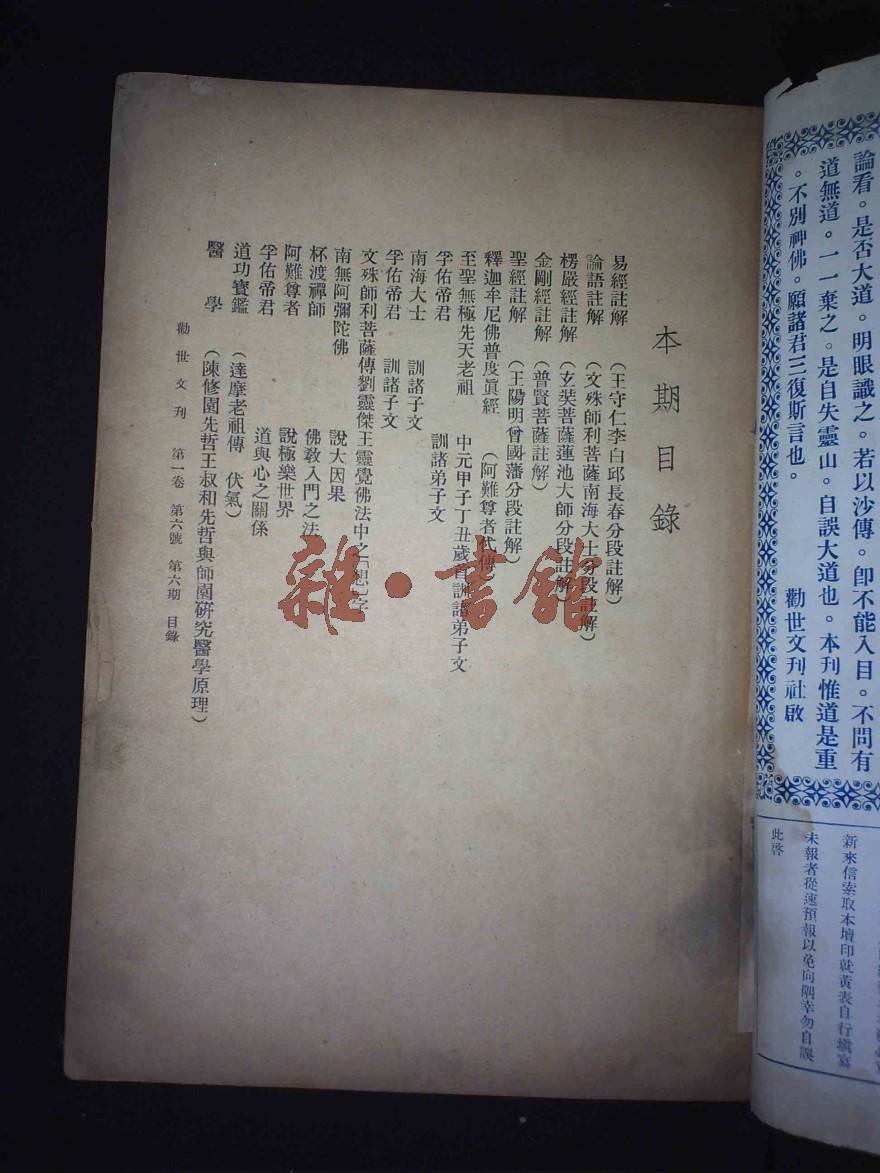 論看。是否大道。明眼識之。若以沙傳。卽不能入目。不問有
道無道。一一棄之。是自失靈山。自誤大道也。本刊惟道是重
。不別神佛。願諸君三復斯言也。
勸世文刊社啟
新來信索取本壇印就黃表自行塡寫
未報者從速預報以免向隅幸勿自誤
此啓
本期目錄
易經註解 (王守仁李白邱長春分段註解)
論語註解 (文殊師利菩薩南海大士分段註解)
楞嚴經註解 (玄奘菩薩蓮池大師分段註解)
金剛經註解 (普賢菩薩註解)
聖經註解 (王陽明曾國藩分段註解)
釋迦牟尼佛普度眞經 (阿難尊者代傳)
至聖無極先天老祖 中元甲子丁丑歲首訓諸弟子文
孚佑帝君 訓諸弟子文
南海大士 訓諸子文
孚佑帝君 訓諸子文
文殊師利菩薩傳劉靈傑王靈覺佛法中之「想」字
南無阿彌陀佛 說大因果
杯渡禪師 佛敎入門之法
阿難尊者 說極樂世界
孚佑帝君 道與心之關係
道功寶鑑 (達摩老祖傳 伏氣)
醫學 (陳修園先哲王叔和先哲與師園硏究醫學原理)
勸世文刊 第一卷 第六號 第六期 目錄
雜·書館